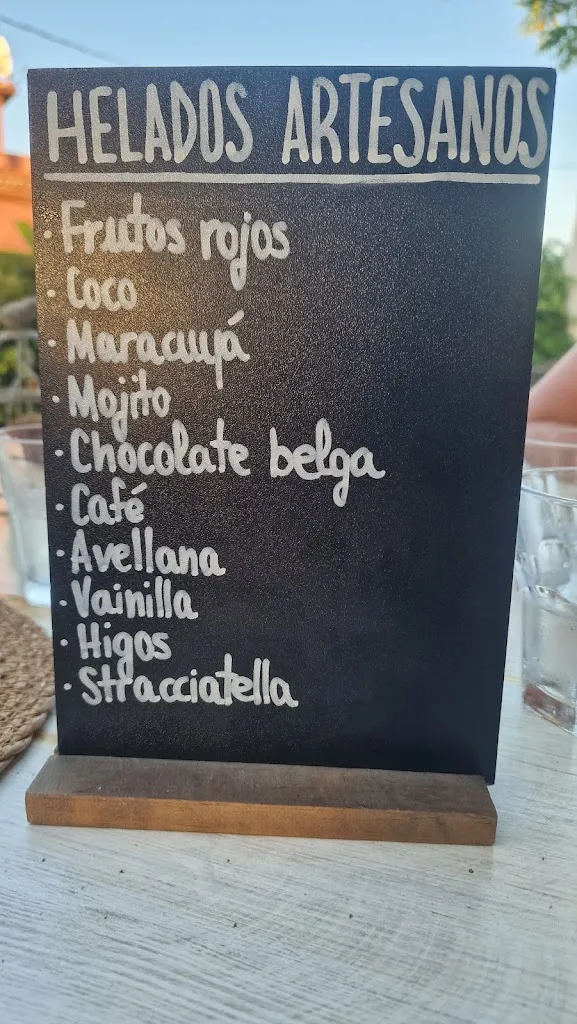 HELADOS ARTESANOS
· Frutos rojos
· Coco
· Maracuyá
· Mojito
· Chocolate belga
· Café
· Avellana
· Vainilla
· Higos
· Stracciatella